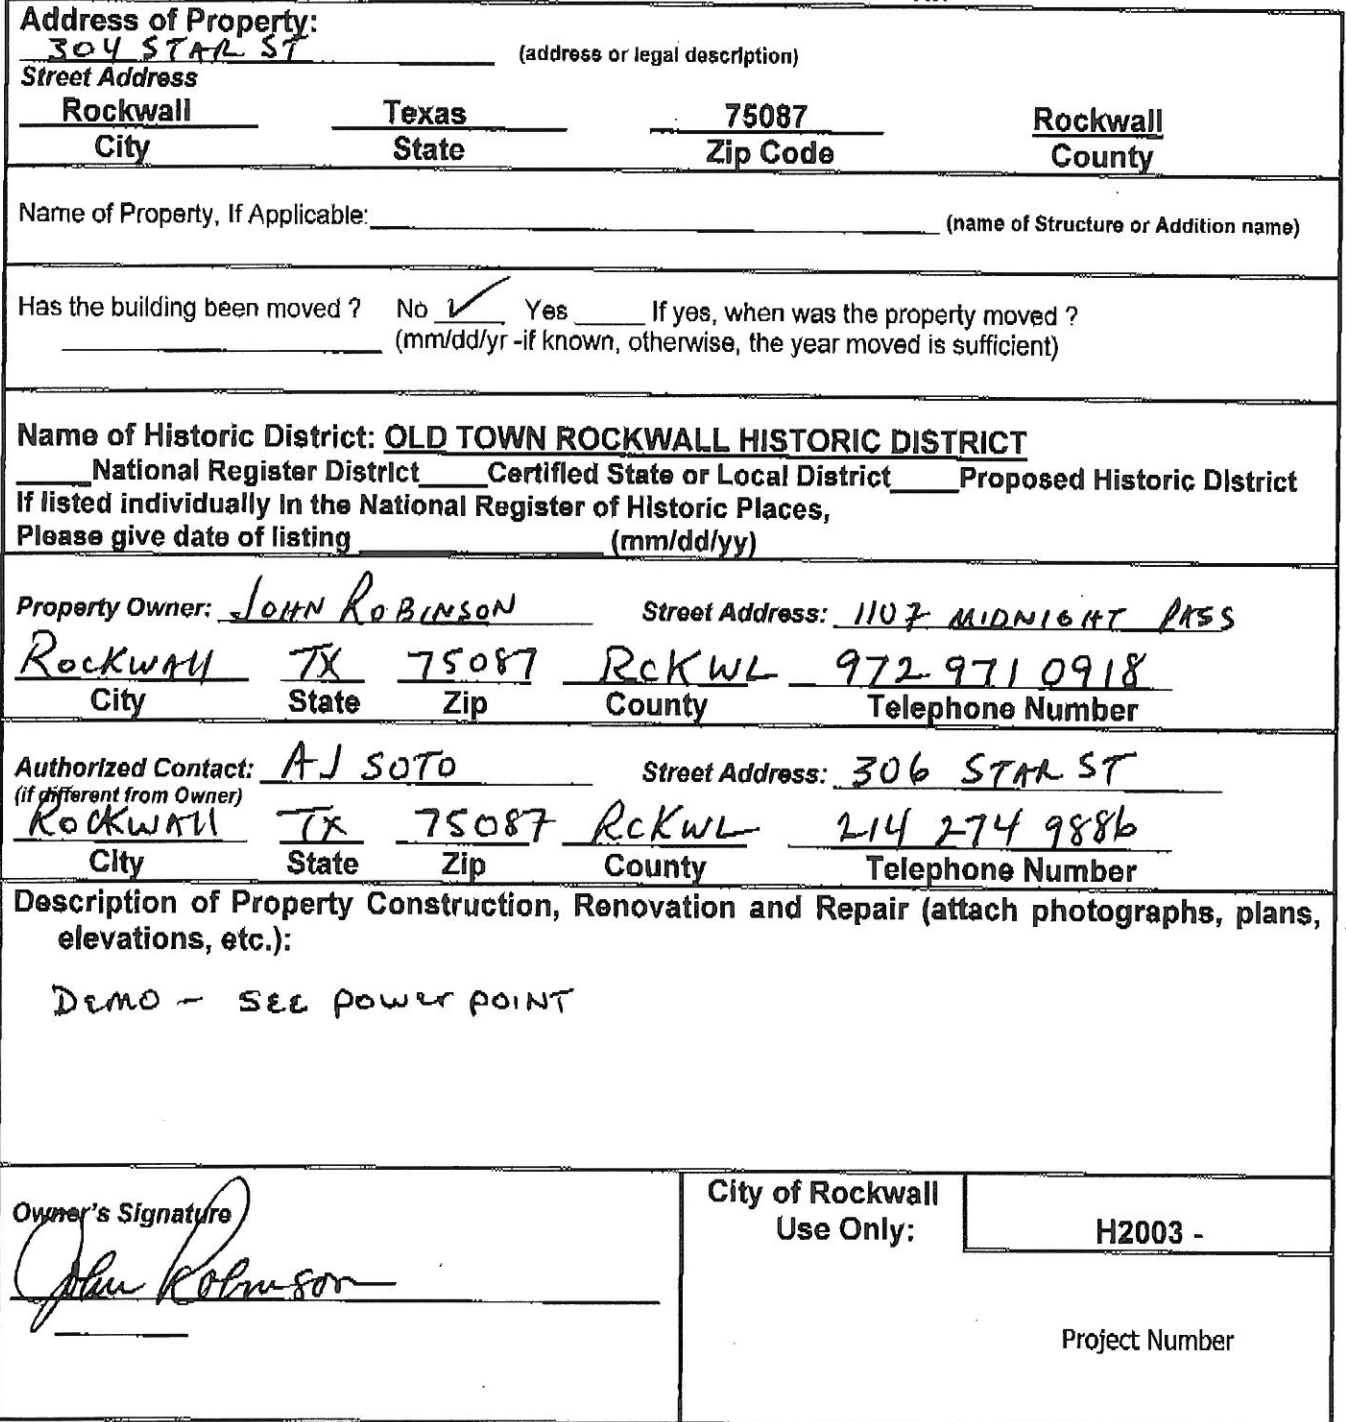 Address of Property:
304 STAR ST (address or legal description)
Street Address
Rockwall Texas 75087 Rockwall
City State Zip Code County
Name of Property, If Applicable: (name of Structure or Addition name)
Has the building been moved ? No ✓ Yes If yes, when was the property moved ?
(mm/dd/yr -if known, otherwise, the year moved is sufficient)
Name of Historic District: OLD TOWN ROCKWALL HISTORIC DISTRICT
National Register District Certified State or Local District Proposed Historic District
If listed individually in the National Register of Historic Places,
Please give date of listing (mm/dd/yy)
Property Owner: JOHN ROBINSON Street Address: 1107 MIDNIGHT PASS
ROCKWALL TX 75087 RCKWL 972-971 0918
City State Zip County Telephone Number
Authorized Contact: AJ SOTO Street Address: 306 STAR ST
(if different from Owner)
ROCKWALL TX 75087 RCKWL 214 274 9886
City State Zip County Telephone Number
Description of Property Construction, Renovation and Repair (attach photographs, plans,
elevations, etc.):
DEMO - SEE POWER POINT
Owner's Signature
John Robinson
City of Rockwall
Use Only:
H2003 -
Project Number